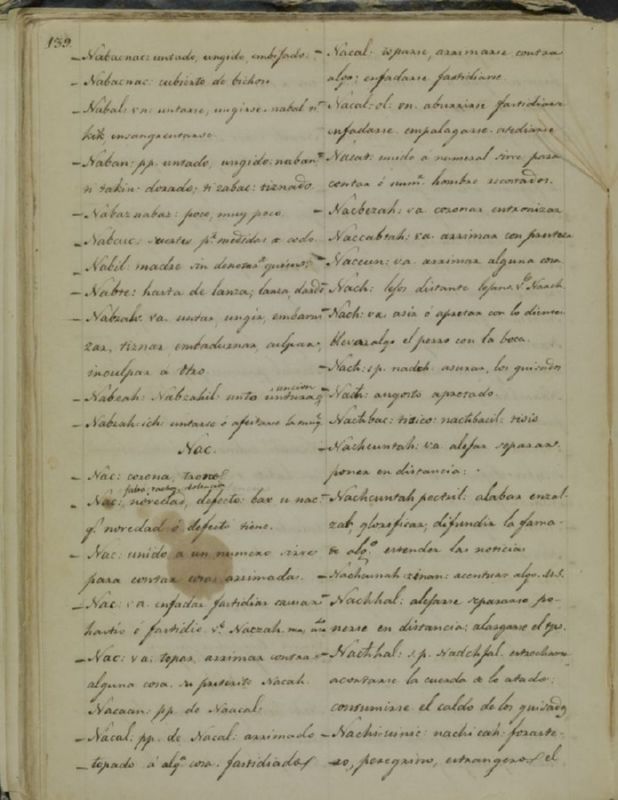 139.
- Nabacnac: untado, ungido, embijado.
- Nabacnac: cubierto de bichos
- Nabal: vn: untarse, ungirse. nabal ti
kik, ensangrentarse
- Naban: pp. untado, ungido: naban
ti takin: dorado; ti zabac: tiznado
- Nabaznabaz: poco, muy poco
- Nabcuc: suertes pª medidas a codo
- Nabil: madre sin denotar
- Nabte: hasta de lanza; lanza, dardo
- Nabzah: va. untar, ungir, embarni
zar, tiznar embadurnar, culpar,
inculpar á otro
- Nabzah: Nabzahil: unto untura uncion
- Nabzah ich: untarse ó afeitarse la muger
Nac.
- Nac: corona, trono
- Nac: novedad, defecto: bax u nac
qe novedad ó defecto tiene.
- Nac: unido a un numero sirve
para contar cosas arrimadas.
- Nac: va enfadar fastidiar causar
hastio ó fastidio. Ve. Naczah
- Nac: va: topar, arrimar contra
alguna cosa. su preterito Nacah
Nacaan: pp. de Naacal:
- Nacal: pp. de Nacal: arrimado
topado á algª cosa. fastidiado
- Nacal: toparse, arrimarse contra
algo; enfadarse fastidiarse
- Nacal: ol: vn. aburrirse fastidiarse
enfadarse empalagarse atediarse
- Nacat: unido á numeral sirve para
contar ó numr hombre recostados.
- Nacbezah: va coronar entronizar
- Naccabtah: va. arrimar con presteza
- Naccun: va. arrimar alguna cosa
- Nach: lejos distante
- Nach: va. asir ó apretar con lo dientes
llevar algo el perro con la boca
- Nach: s.p. nadch. asurar, los guisados
- Nath: angosto apretado
Nachbac: tisico: nachbacil: tisis
- Nachcuntah: va alejar separar
poner en distancia:
- Nachcuntah pectzil: alabar enzal-
zar glorificar, difundir la fama
de algo. extender las noticias
- Nachcunah zinan: acentuar algo. M.S.
- Nachhal: alejarse separarse po-
nerse en distancia: alargarse el
- Nathhal: s.p. Nadchhal. estrecharse
acortarse la cuerda de lo atado:
consumirse el caldo de los guisados
- Nachi uinic: nachi cah: foraste-
ro, peregrino, estrangero el